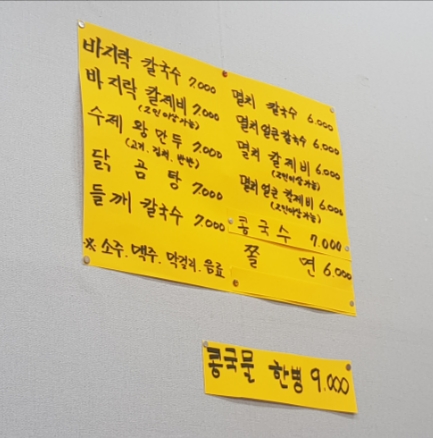 바지락 칼국수 7.000
바지락 칼제비 7.000
(2인이상가능)
수제 왕만두 7.000
(고기, 김치, 반반)
닭 곰 탕 7.000
들깨 칼국수 7.000
※ 소주. 맥주. 막걸리. 음료
멸치 칼국수 6.000
멸치얼큰칼국수 6.000
멸치 칼제비 6.000
(2인이상가능)
멸치얼큰 칼제비 6.000
(2인이상가능)
콩국수 7.000
쫄 면 6.000
콩국물 한병 9.000